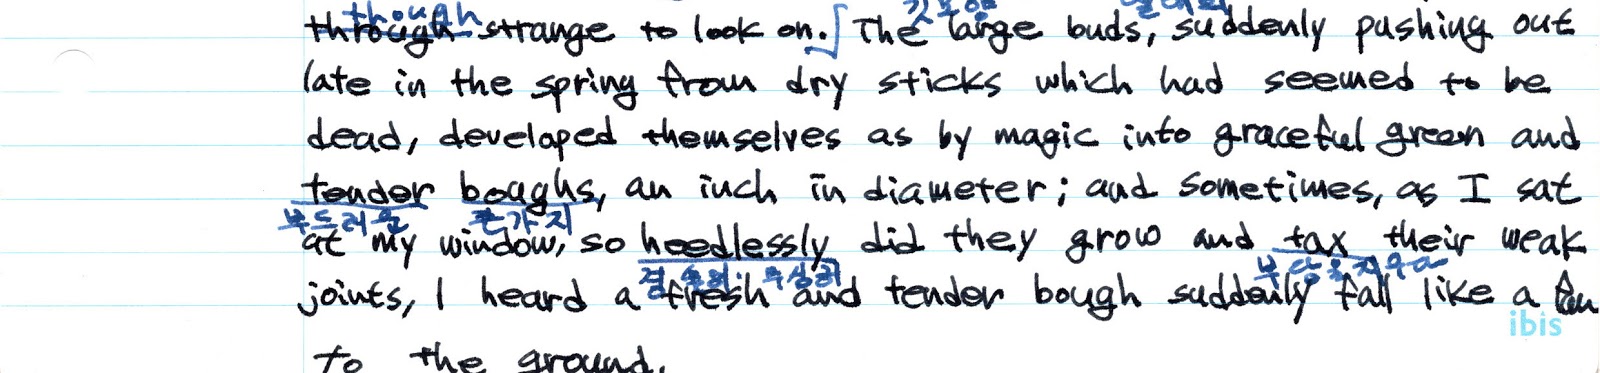 though
through strange to look on. The large buds, suddenly pushing out
late in the spring from dry sticks which had seemed to be
dead, developed themselves as by magic into graceful green and
tender boughs, an inch in diameter; and sometimes, as I sat
부드러운 큰가지
at my window, so heedlessly did they grow and tax their weak
부담을 지우다
joints, I heard a fresh and tender bough suddenly fall like a fan
ibis
to the ground.